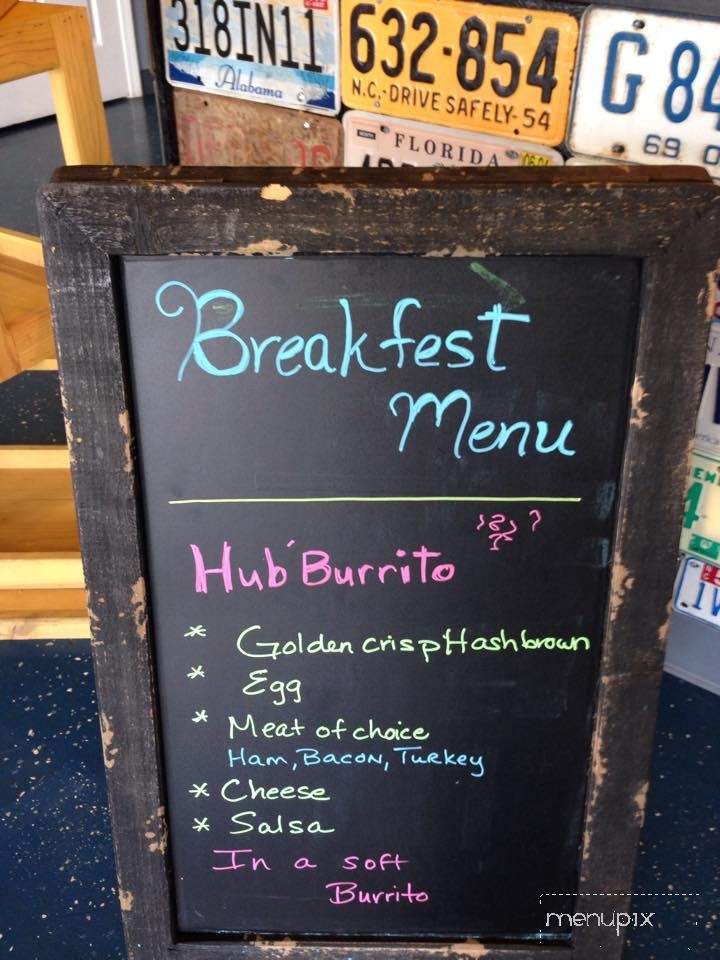 318IN11
Alabama
632-854
N.C.-DRIVE SAFELY-54
G 84
69
FLORIDA
Breakfest
Menu
Hub Burrito
* Golden crisp Hashbrown
* Egg
* Meat of choice
Ham, Bacon, Turkey
* Cheese
* Salsa
In a soft
Burrito
menupix